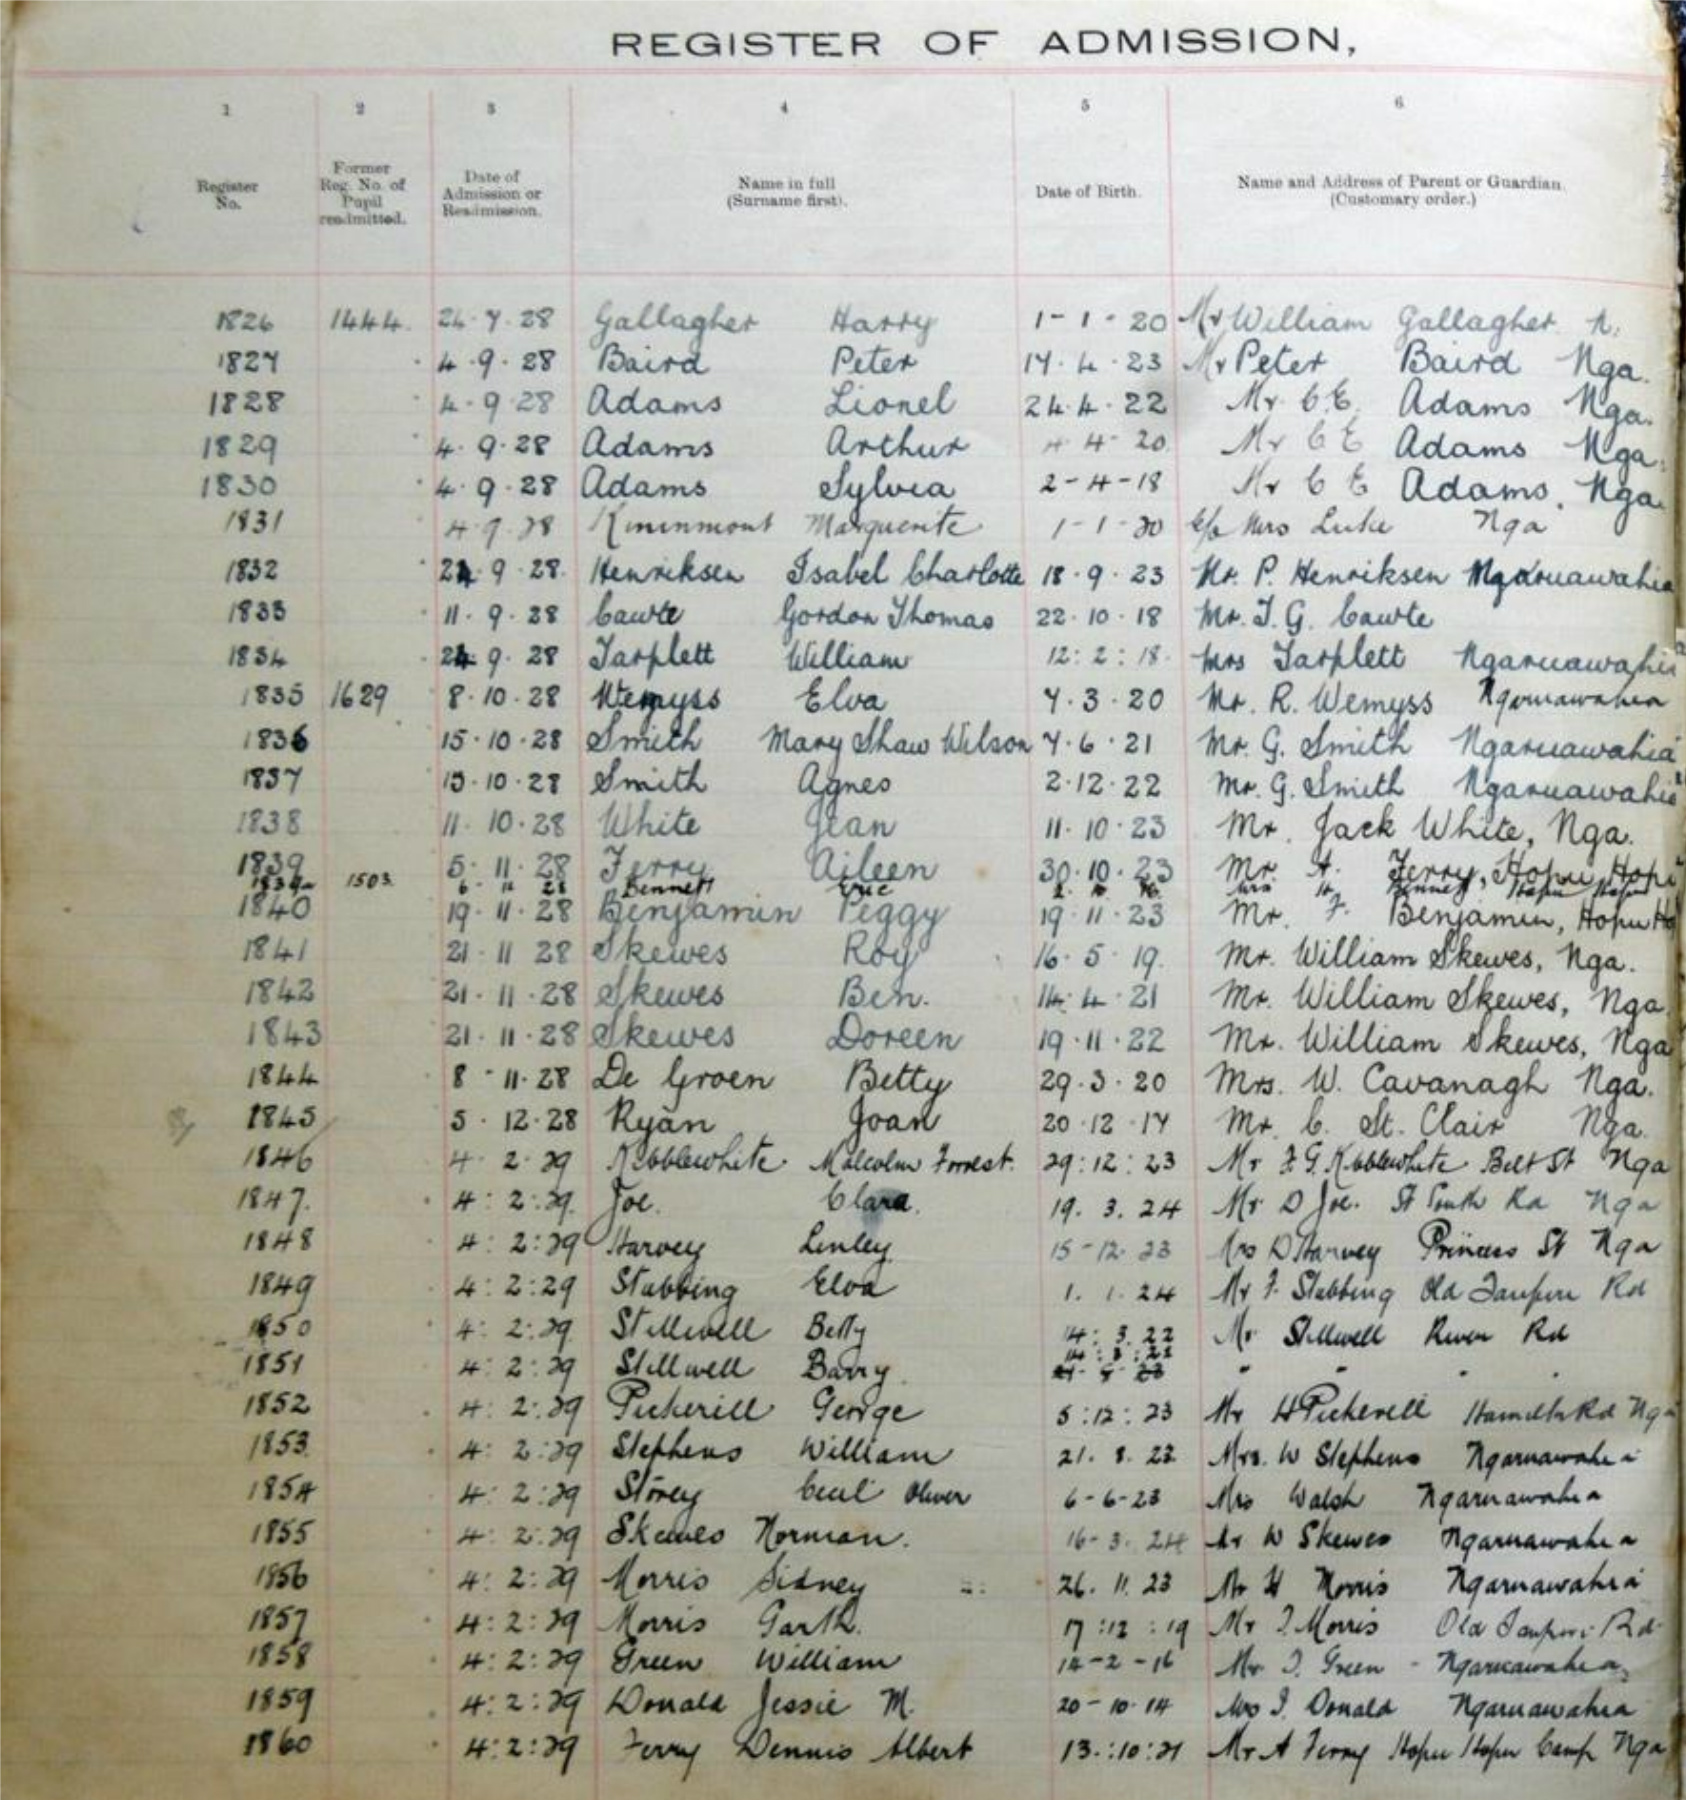 REGISTER OF ADMISSION,
1 2 3 4 5 6
Register No. Former Reg. No. of Pupil readmitted. Date of Admission or Readmission. Name in full (Surname first). Date of Birth. Name and Address of Parent or Guardian. (Customary order.)
1826 1444 24.7.28 Gallagher Harry 1-1-20 Mr William Gallagher N.
1827 4.9.28 Baird Peter 17.4.23 Mr Peter Baird Nga.
1828 4.9.28 Adams Lionel 24.4.22 Mr C.E. Adams Nga.
1829 4.9.28 Adams Arthur 4.4.20 Mr C E Adams Nga.
1830 4.9.28 Adams Sylvia 2-4-18 Mr C E Adams, Nga.
1831 4.9.28 Kininmont Marguerite 1-1-20 c/o Mrs Luke Nga
1832 9.28 Henriksen Isabel Charlotte 18.9.23 Mr. P. Henriksen Ngaruawahia
1833 11.9.28 Cawte Gordon Thomas 22.10.18 Mr. T. G. Cawte
1834 9.28 Tarplett William 12:2:18 Mrs Tarplett Ngaruawahia
1835 1629 8.10.28 Wemyss Elva 7.3.20 Mr. R. Wemyss Ngaruawahia
1836 15.10.28 Smith Mary Shaw Wilson 7.6.21 Mr. G. Smith Ngaruawahia
1837 15.10.28 Smith Agnes 2.12.22 Mr. G. Smith Ngaruawahia
1838 11.10.28 White Jean 11.10.23 Mr. Jack White, Nga.
1839 5.11.28 Ferry Aileen 30.10.23 Mr. A. Ferry, Hopu Hopu
1503 6 11 28 Bennett Eric Mrs H. Bennett Hopu Hopu
1840 19.11.28 Benjamin Peggy 19.11.23 Mr. F. Benjamin, Hopu Ho
1841 21.11 28 Skewes Roy 16.5.19. Mr. William Skewes, Nga.
1842 21.11.28 Skewes Ben. 14.4.21 Mr. William Skewes, Nga
1843 21.11.28 Skewes Doreen 19.11.22 Mr. William Skewes, Nga
1844 8-11.28 De Groen Betty 29.3.20 Mrs. W. Cavanagh Nga.
1845 5.12.28 Ryan Joan 20.12.17 Mr. C. St. Clair Nga.
1846 4.2.29 Kebblewhite Malcolm Forrest. 29:12:23 Mr F.G. Kebblewhite Belt St Nga
1847. 4:2:29. Joe. Clara. 19.3.24 Mr D Joe. Rd Nga
1848 4:2:29 Harvey Linley 15-12.23 Mrs D Harvey Princess St Nga
1849 4:2:29 Stubbing Elva 1.1.24 Mr F. Stubbing Old Taupiri Rd
1850 4:2:29 Stillwell Betty 14:3.22 Mr Stillwell River Rd
1851 4:2:29 Stillwell Barry. " " " "
1852 4:2:29 Pickerill George 5:12:23 Mr H Pickerell Hamilton Rd Nga
1853. 4:2:29 Stephens William 21.8.22 Mrs. W Stephens Ngaruawahia
1854 4:2:29 Storey Cecil Oliver 6-6-23 Mrs Walsh Ngaruawahia
1855 4:2:29 Skewes Norman. 16-3.24 Mr W Skewes Ngaruawahia
1856 4:2:29 Morris Sidney 26.11.23 Mr H Morris Ngaruawahia
1857 4:2:29 Morris Garth. 17:12:19 Mr J. Morris Old Taupiri Rd
1858 4:2:29 Green William 14-2-16 Mr J. Green - Ngaruawahia
1859 4:2:29 Donald Jessie M. 20-10-14 Mrs J. Donald Ngaruawahia
1860 4:2:29 Ferry Dennis Albert 13:10:21 Mr A Ferry Hopu Hopu Camp Nga